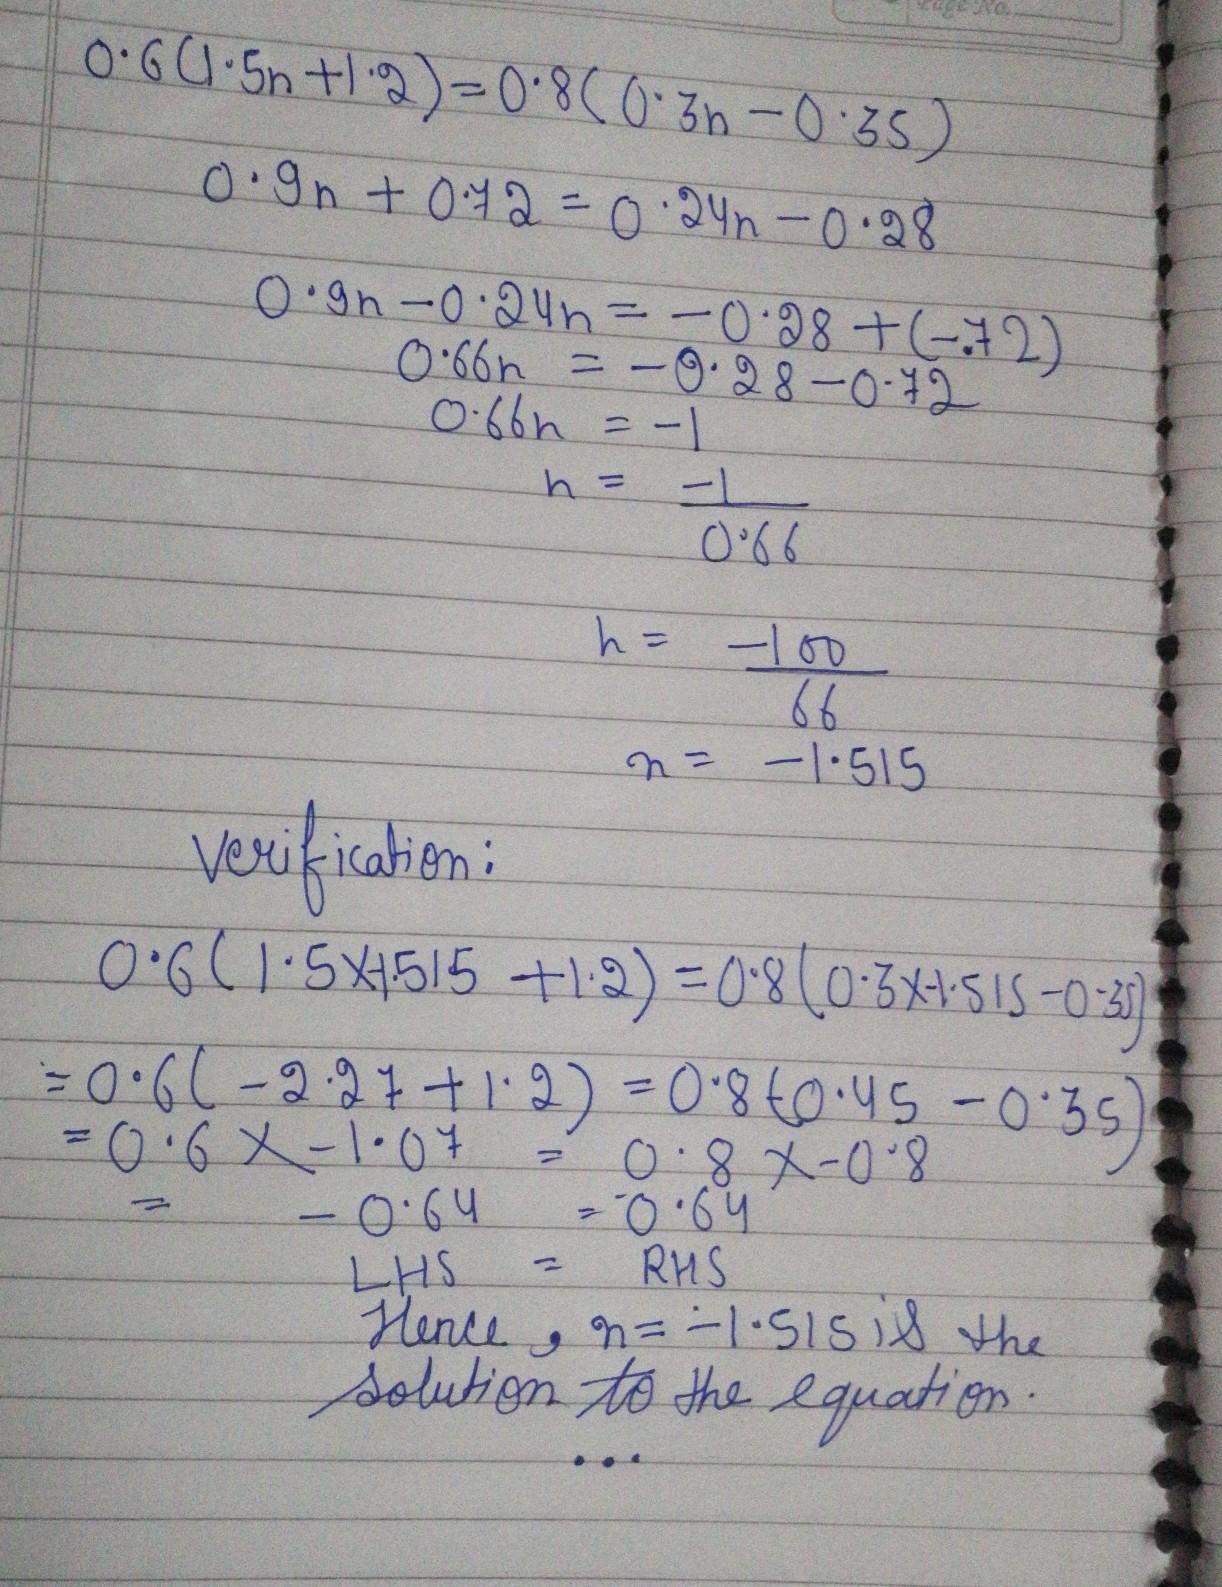 Page No.
0.6(1.5n+1.2)=0.8(0.3n-0.35)
0.9n + 0.72 = 0.24n - 0.28
0.9n-0.24n = -0.28 +(-.72)
0.66n = -0.28-0.72
0.66n = -1
n = -1
0.66
n = -100
66
n = -1.515
Verification:
0.6(1.5x-1.515 +1.2) = 0.8(0.3x-1.515-0.35)
=0.6(-2.27+1.2) = 0.8(-0.45 - 0.35)
=0.6 x -1.07 = 0.8 x-0.8
= -0.64 = -0.64
LHS = RHS
Hence, n= -1.515 is the
solution to the equation.
...